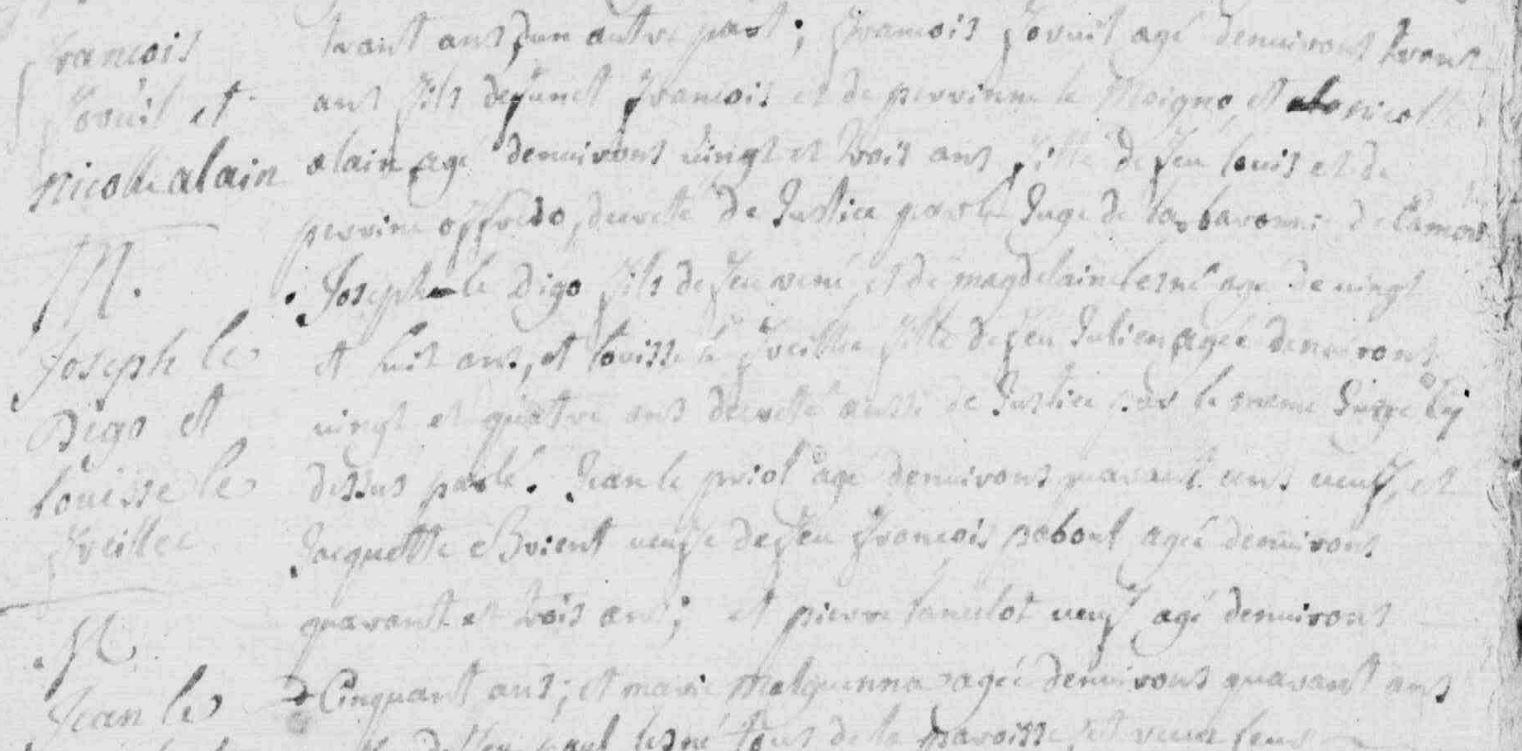 francois
Jouuil et
nicolle alain
M.
Joseph le
Digo et
louisse le
freillec
M
Jean le
trant ans d'un autre part; francois Jouuil agé denuirons trons
ans fils defunct francois et de perrinne le Moigno, et nicolle
alain agé denuirons uingt et trois ans fille de feu louis et de
perrine offredo, decreté de Justice par le Juge de la baronni de Camors
Joseph le Digo fils de feu rené, et de magdelaine lesné agé de uingt
et huit ans, et louisse le freillec fille de feu Julien agée denuirons
uingt et quatre ans decreté aussi de Justice par le meme Juge cy
dessus parlé. Jean le priol agé denuirons quarant ans ueuf, et
Jacquette Brient ueufe de feu francois rabout agée denuirons
quarant et trois ans; et pierre lancelot ueuf agé denuirons
Cinquant ans; et marie Malquenna agée denuirons quarant ans
de feu paul lesné tous de la paroisse, et veuë leur